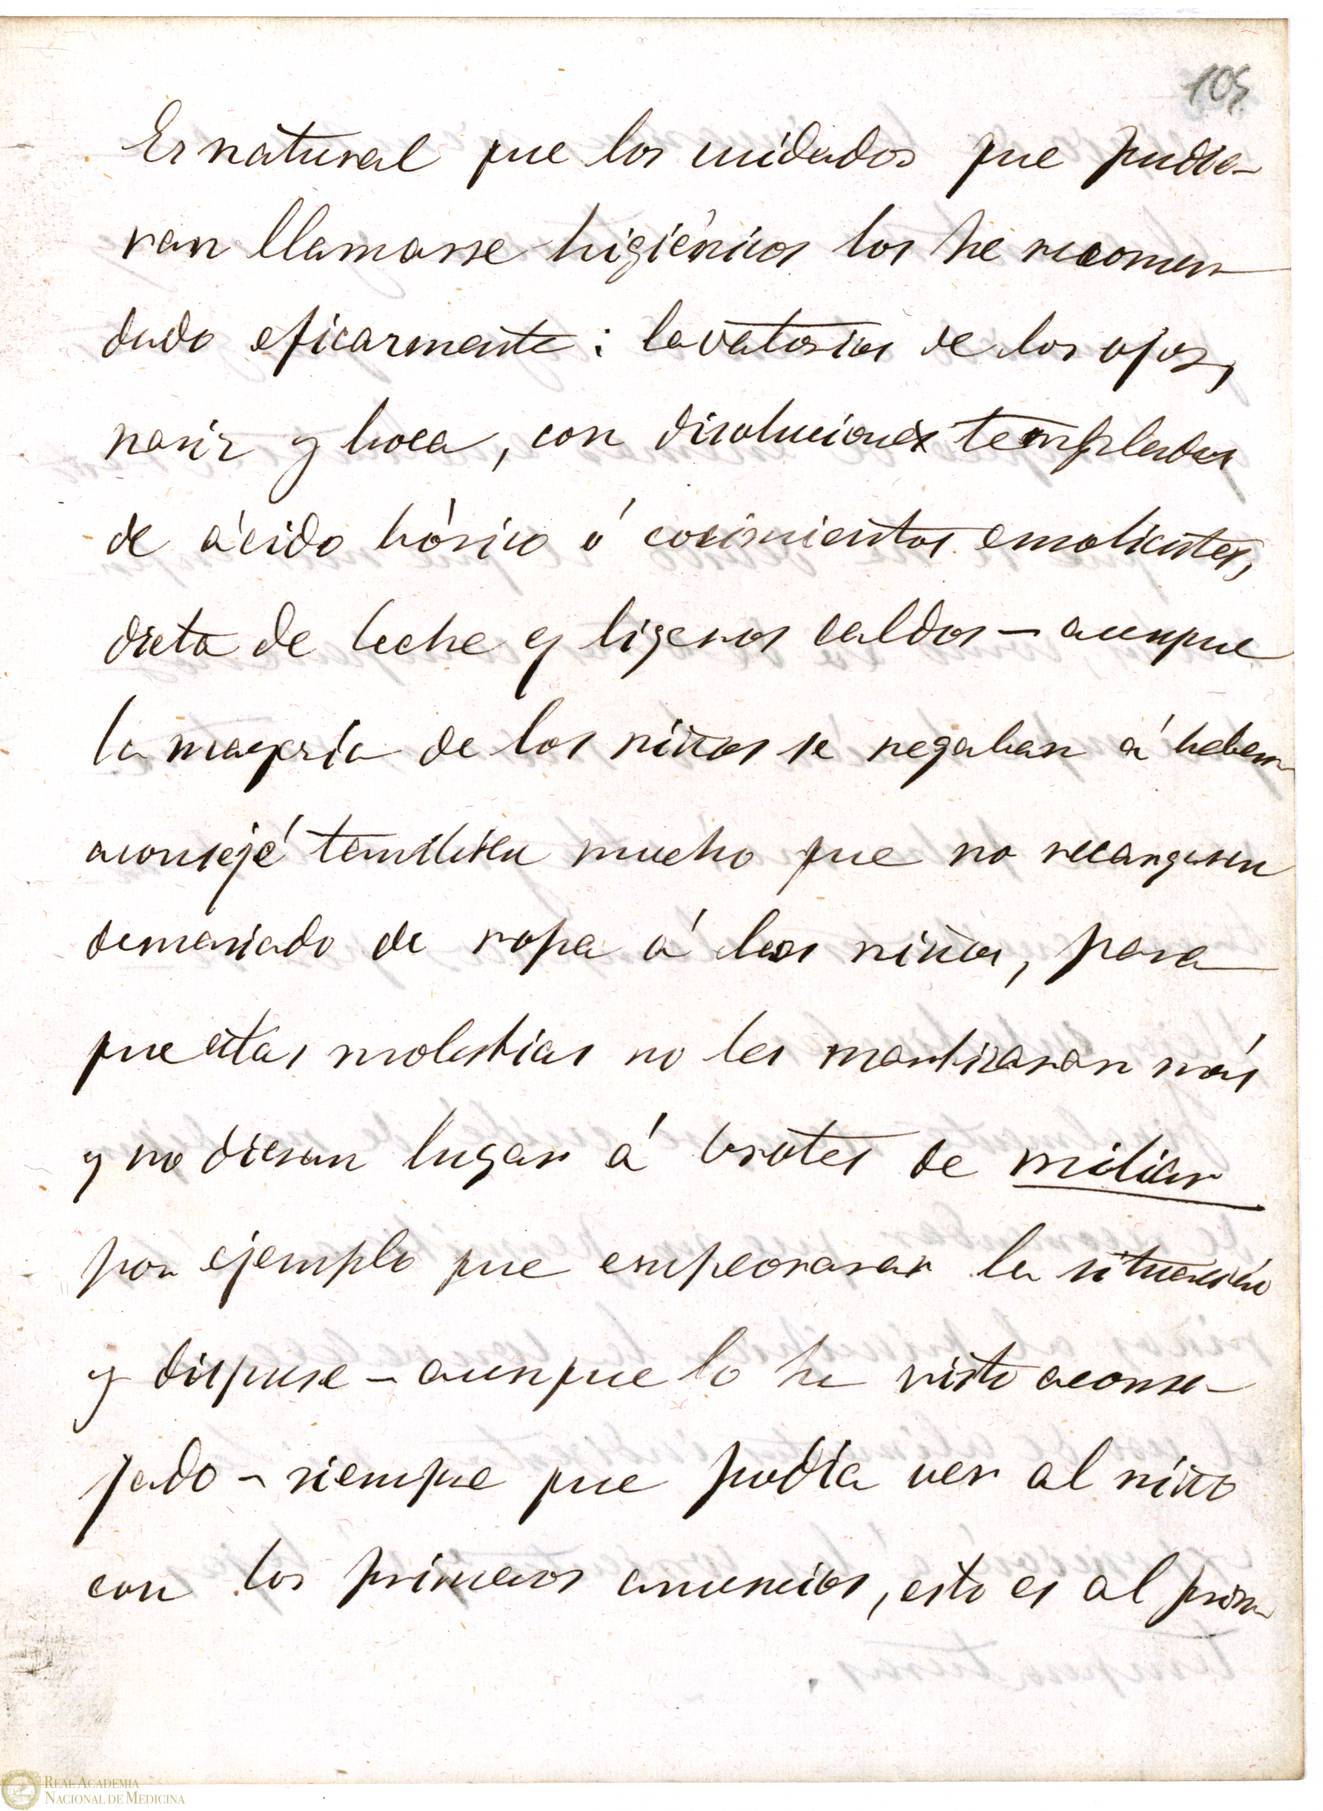 105
Es natural que los cuidados que pudie-
ran llamarse higiénicos los he recomen
dado eficazmente: lavatorios de los ojos,
nariz y boca, con disoluciones templadas
de ácido bórico ó cocimientos emolientes,
dieta de leche y ligeros caldos - aunque
la mayoría de los niños se negaban á beber
aconsejé también mucho que no recargasen
demasiado de ropa á los niños, para
que estas molestias no les martirizaran más
y no dieran lugar á brotes de miliar
por ejemplo que empeoraran la situación
y dispuse - aunque lo he visto aconse-
jado - siempre que podía ver al niño
con los primeros anuncios, esto es al prin
REAL ACADEMIA
NACIONAL DE MEDICINA